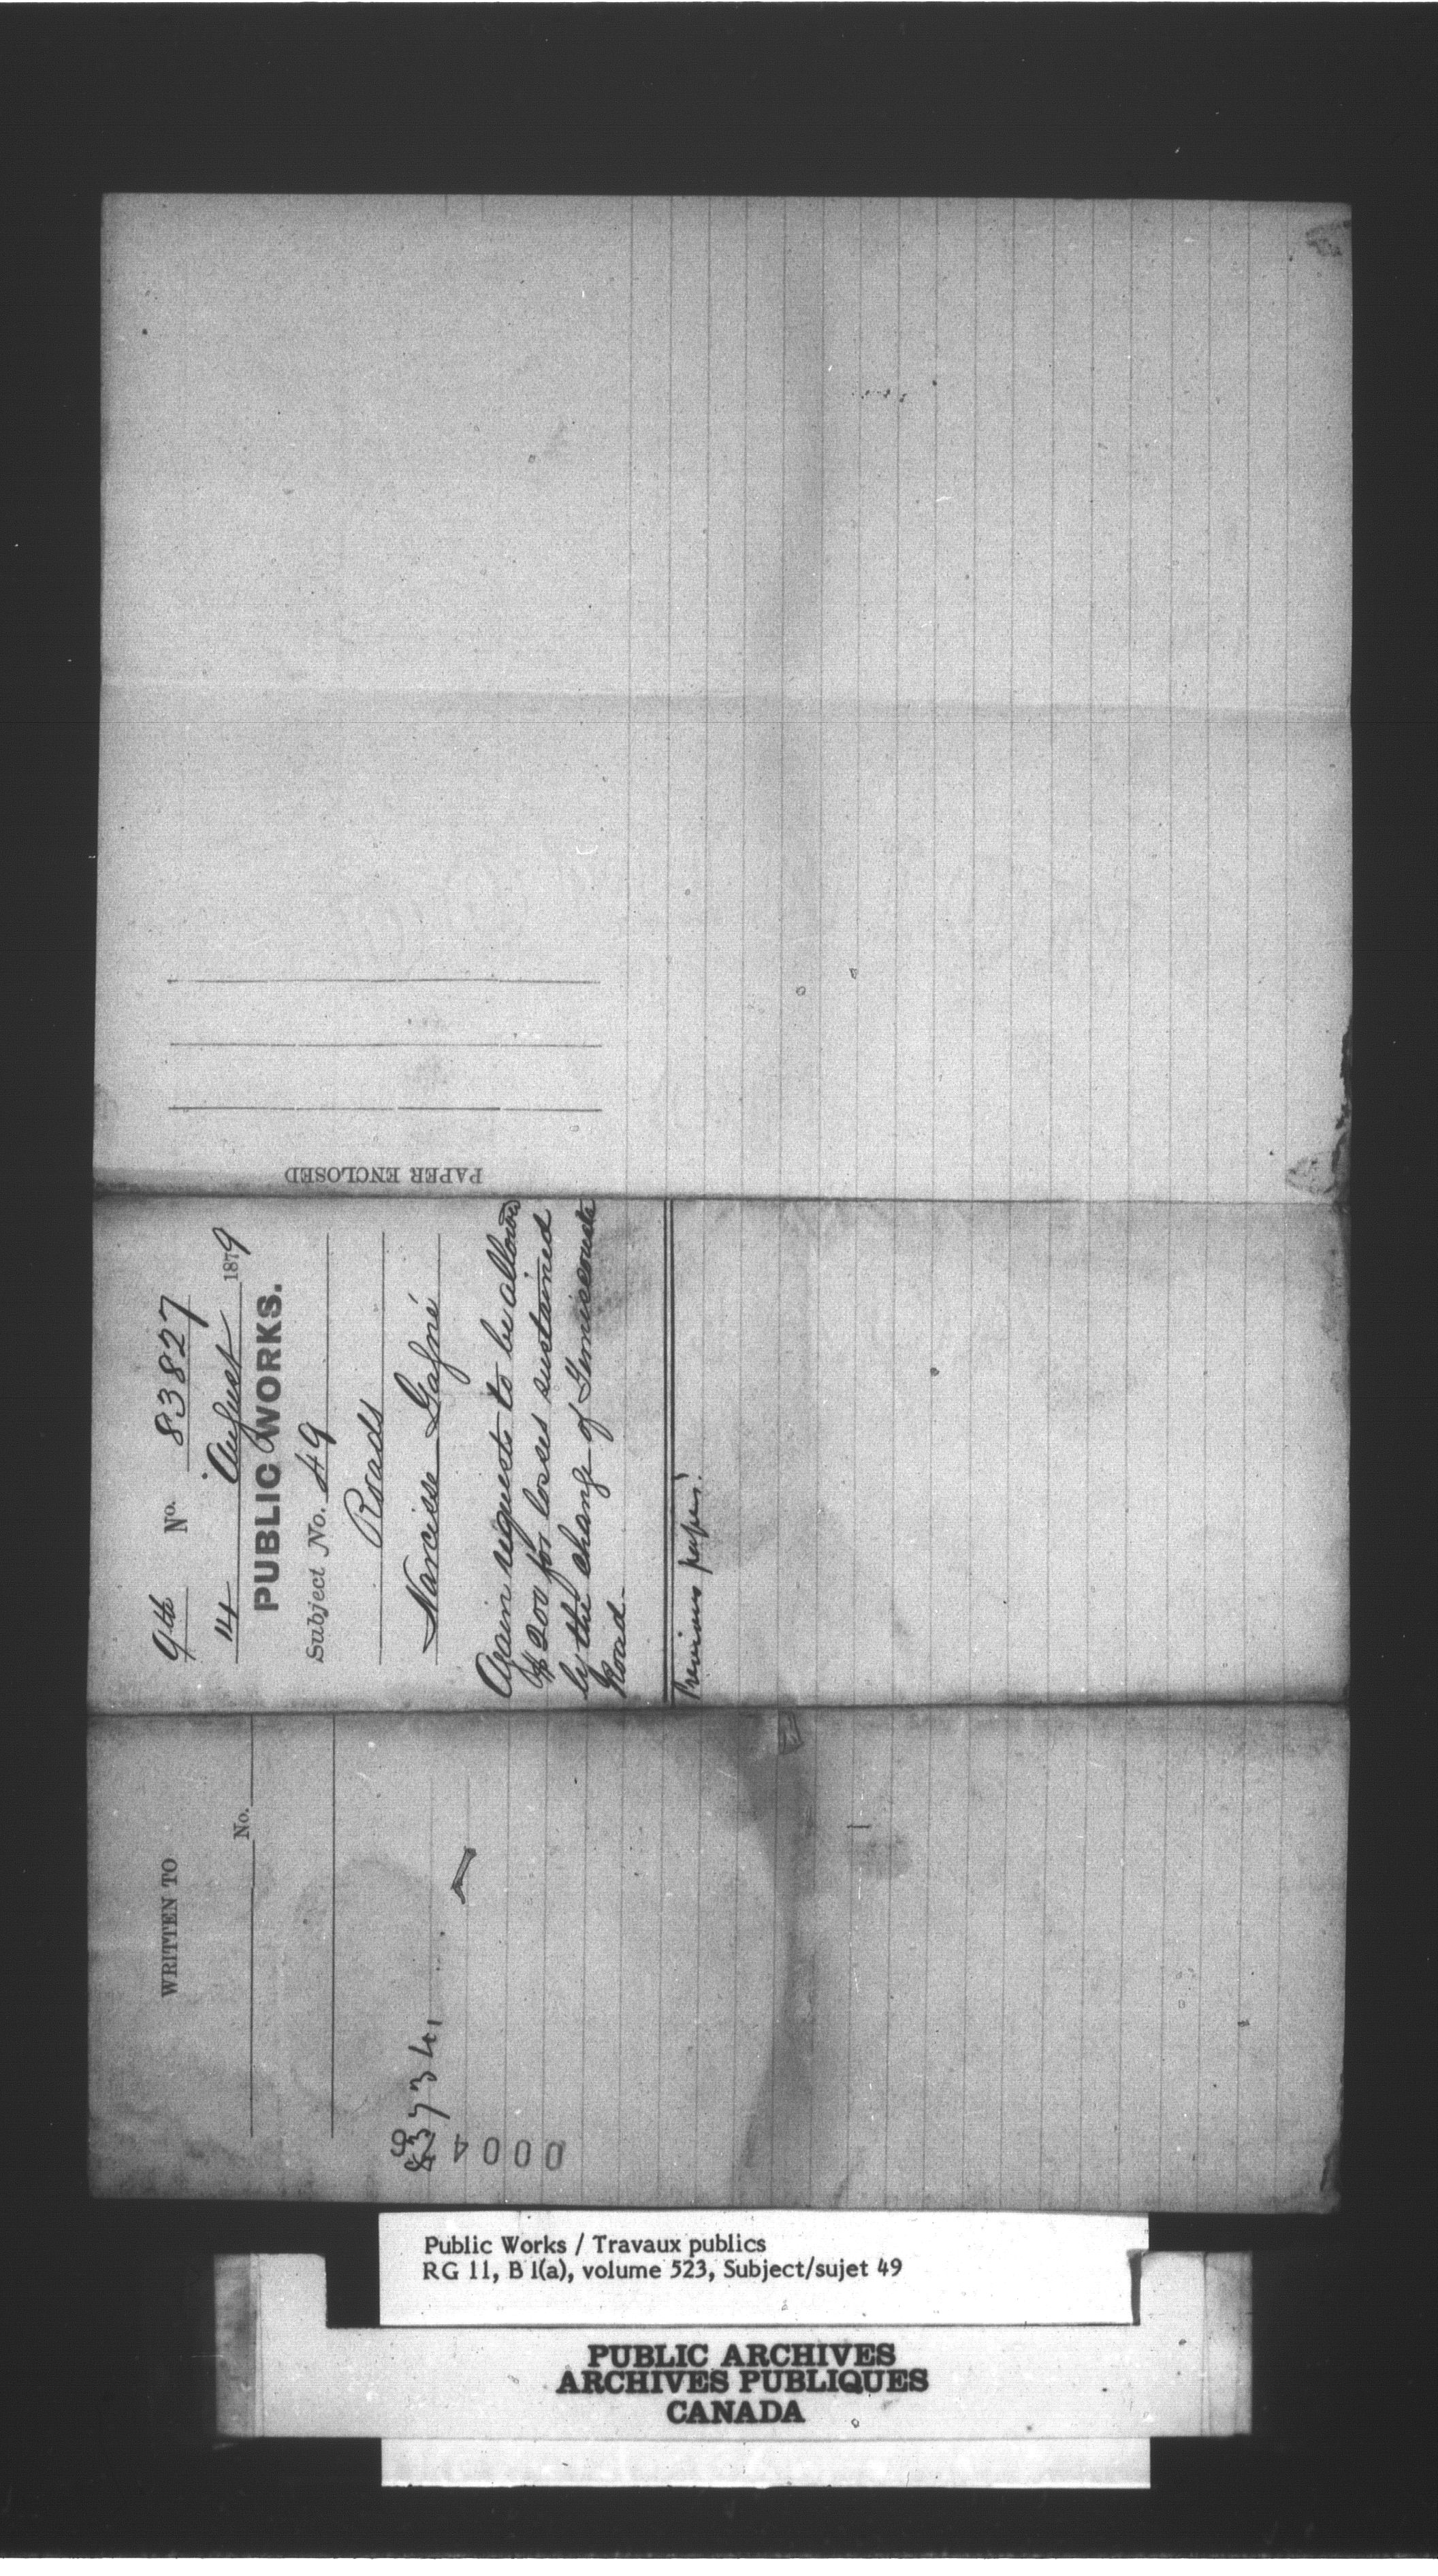 PAPER ENCLOSED
9th No. 83827
14 August 1879
PUBLIC WORKS.
Subject No. 49
Roads
Narcisse Gagné
Again requests to be allowed
$200 for losses sustained
by the change of Temiscouata
Road.
Previous papers.
WRITTEN TO
No.
83734
0004
Public Works / Travaux publics
RG 11, B 1(a), volume 523, Subject/sujet 49
PUBLIC ARCHIVES
ARCHIVES PUBLIQUES
CANADA